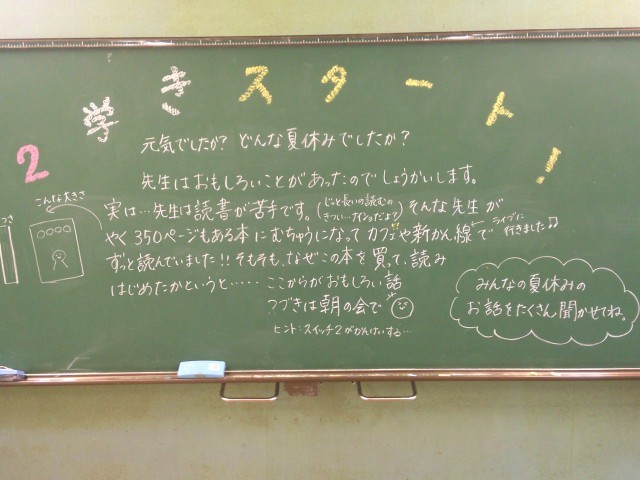 2学きスタート!
元気でしたか? どんな夏休みでしたか?
先生はおもしろいことがあったのでしょうかいします。
こんな大きさ
実は…先生は読書が苦手です。(じっと長いの読むのきつい…ナイショだよ)そんな先生が
やく350ページもある本にむちゅうになってカフェや新かん線で
ライブに行きました♫
ずっと読んでいました!!そもそも、なぜこの本を買って、読み
はじめたかというと‥‥‥ ここからがおもしろい話
つづきは朝の会で
ヒント:スイッチ2がかんけいする…
みんなの夏休みの
お話をたくさん聞かせてね。